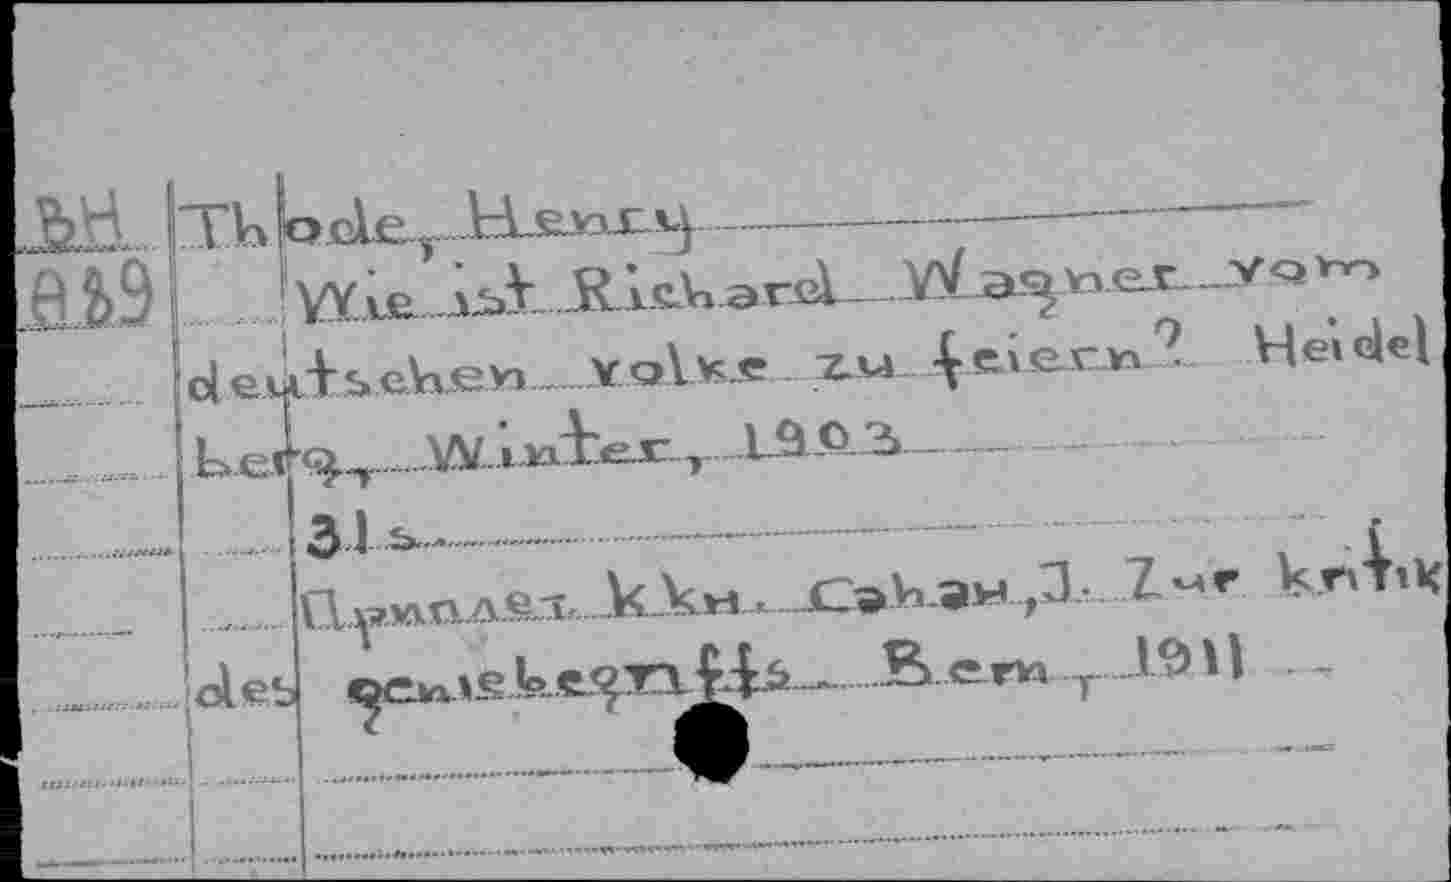 ВН
Thode, Henry
Wie ist Richard Wagner vom
deutschen Volke zu feiern? Heidel
berg, Winter, 1903
31 s
Приплет. к кн. Cahan, J. Zur kritik
des geniebegriffs. Bern, 1911